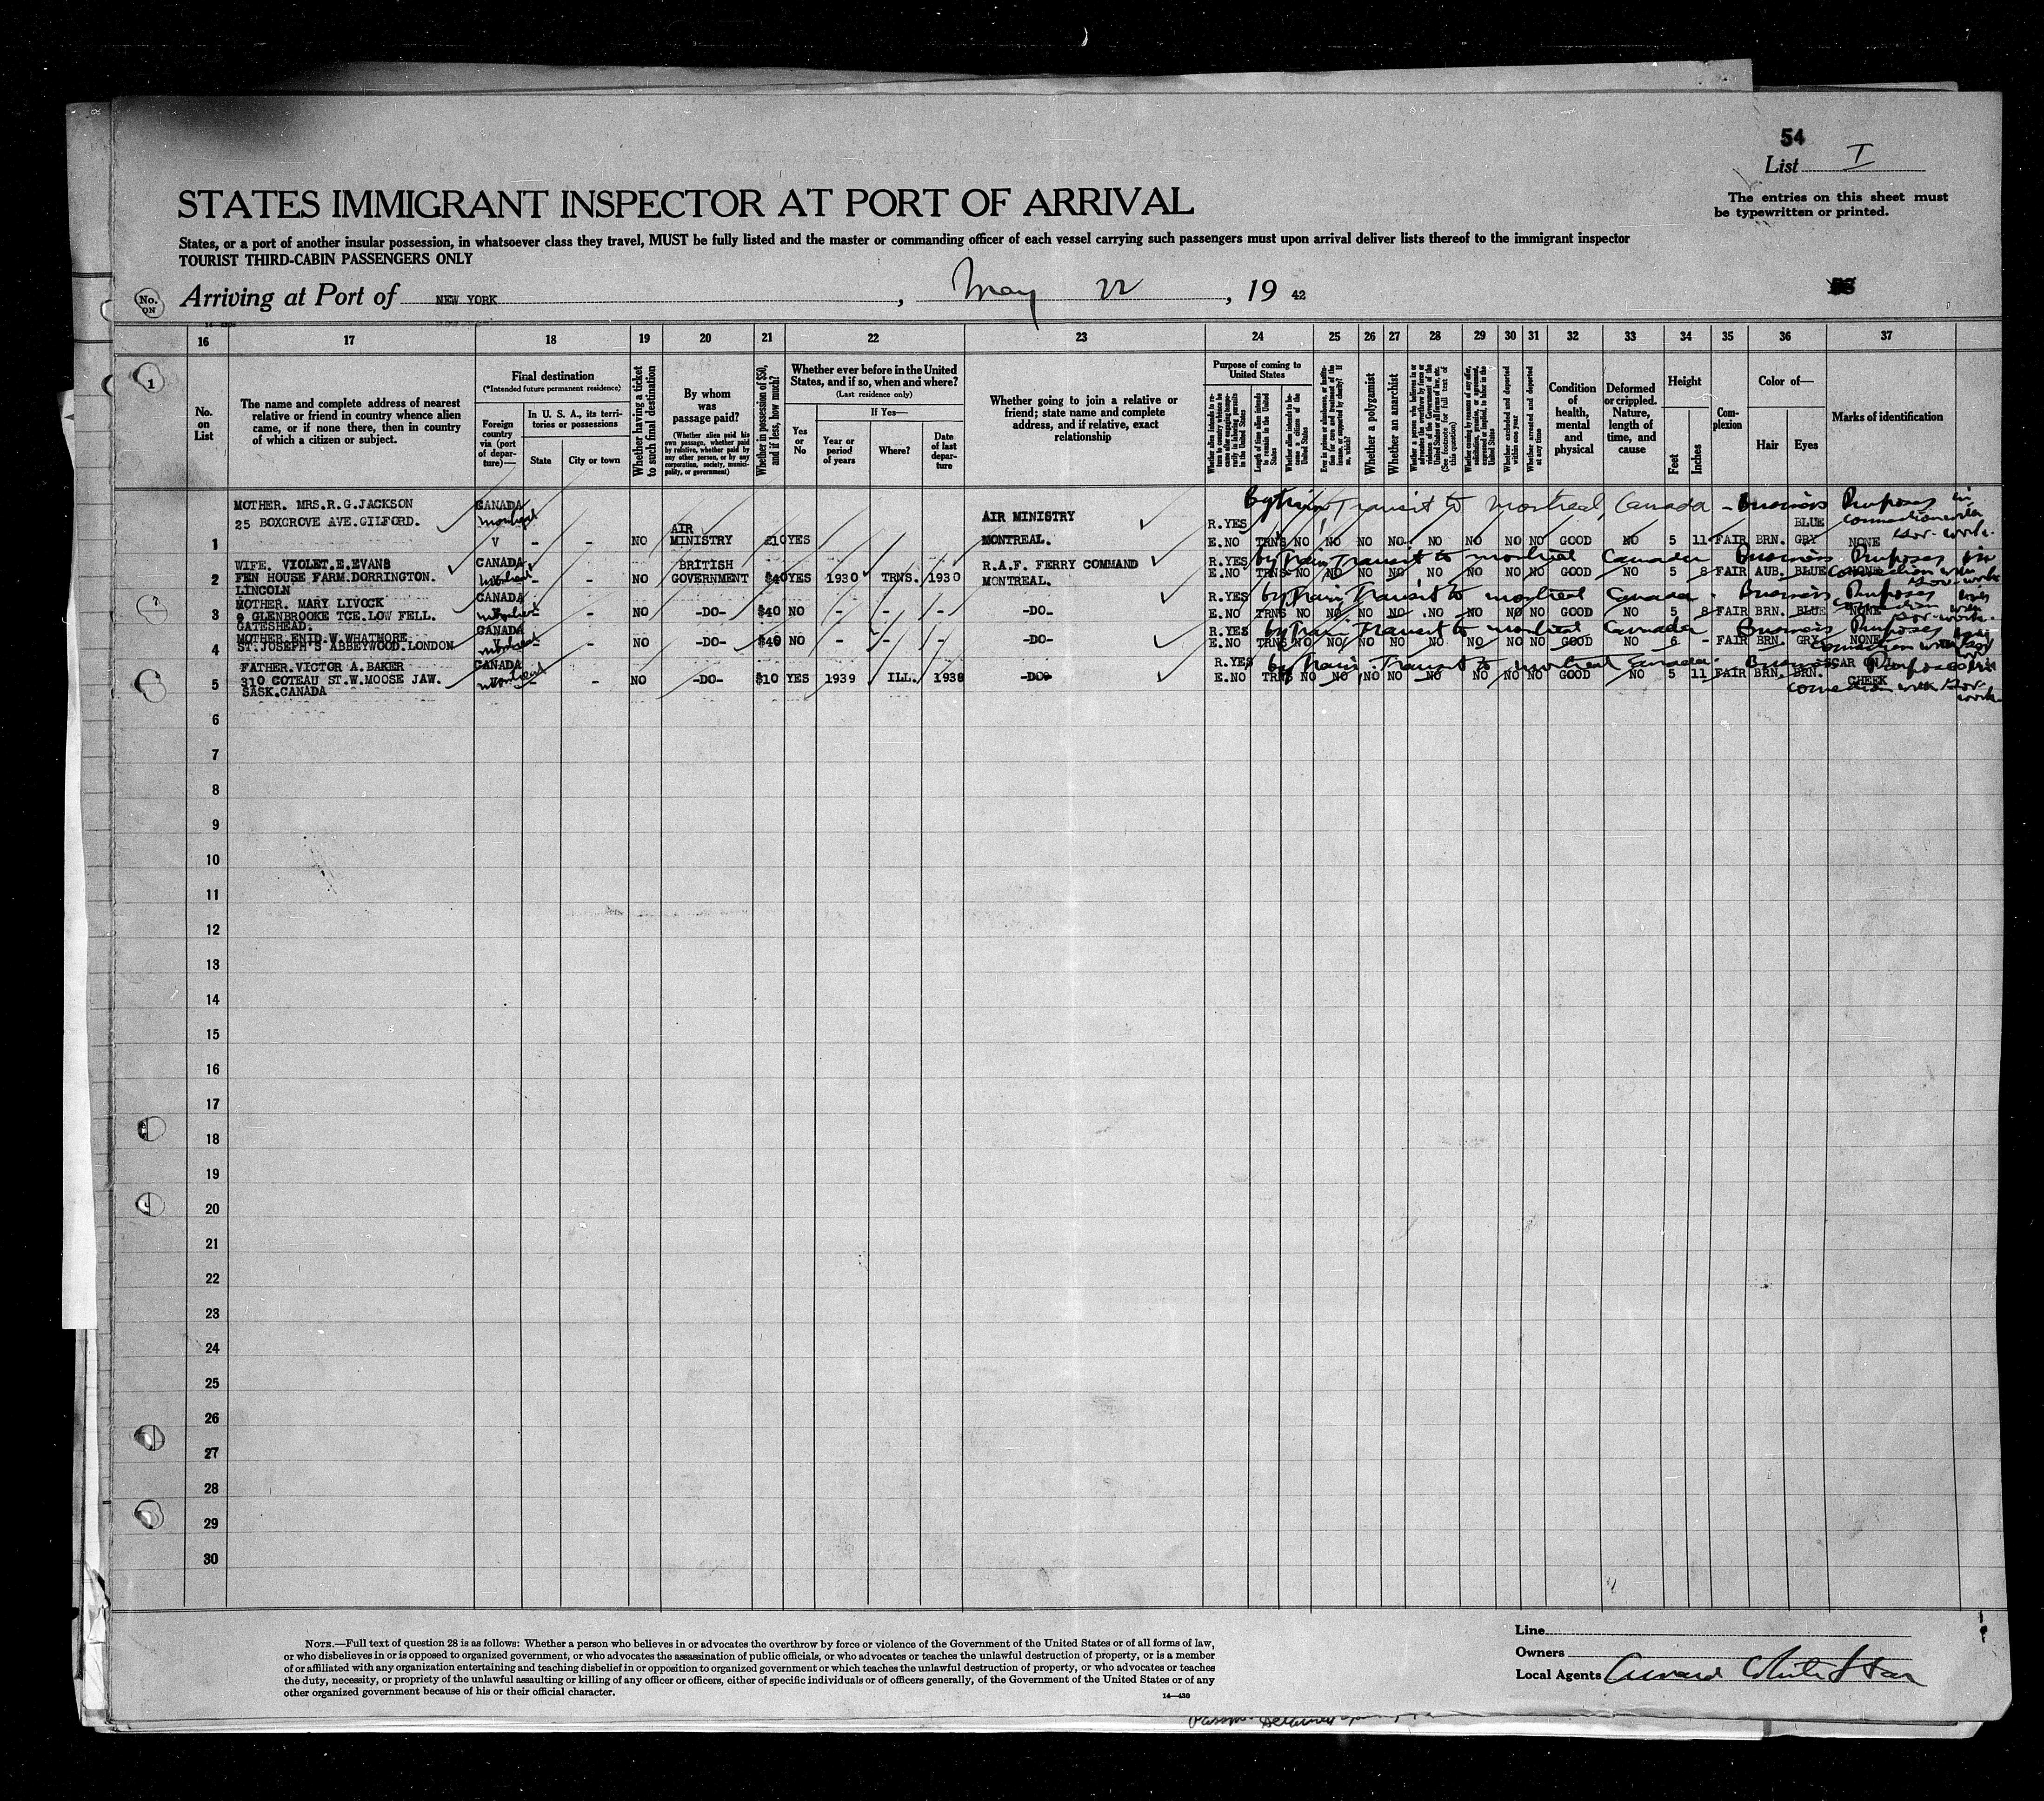 54
List I
The entries on this sheet must
be typewritten or printed.
STATES IMMIGRANT INSPECTOR AT PORT OF ARRIVAL
States, or a port of another insular possession, in whatsoever class they travel, MUST be fully listed and the master or commanding officer of each vessel carrying such passengers must upon arrival deliver lists thereof to the immigrant inspector
TOURIST THIRD-CABIN PASSENGERS ONLY
No. ON
Arriving at Port of NEW YORK, May 22, 19 42
16 17 18 19 20 21 22 23 24 25 26 27 28 29 30 31 32 33 34 35 36 37
1
No. on List
The name and complete address of nearest
relative or friend in country whence alien
came, or if none there, then in country
of which a citizen or subject.
Final destination
(*Intended future permanent residence)
Foreign country via (port of departure)—
In U. S. A., its territories or possessions
State
City or town
Whether having a ticket to such final destination
By whom was passage paid?
(Whether alien paid his own passage, whether paid by relative, whether paid by any other person, or by any corporation, society, municipality, or government)
Whether in possession of $50, and if less, how much?
Whether ever before in the United
States, and if so, when and where?
(Last residence only)
Yes or No
If Yes—
Year or period of years
Where?
Date of last departure
Whether going to join a relative or
friend; state name and complete
address, and if relative, exact
relationship
Purpose of coming to United States
Whether alien intends to return to country whence he came after engaging temporarily in laboring pursuits in the United States
Length of time alien intends to remain in the United States
Whether alien intends to become a citizen of the United States
Ever in prison or almshouse, or institution for care and treatment of the insane, or supported by charity? If so, which?
Whether a polygamist
Whether an anarchist
Whether a person who believes in or advocates the overthrow by force or violence of the Government of the United States or all forms of law, etc. (See footnote for full text of this question)
Whether coming by reason of any offer, solicitation, promise, or agreement, expressed or implied, to labor in the United States
Whether excluded and deported within one year
Whether arrested and deported at any time
Condition of health, mental and physical
Deformed or crippled. Nature, length of time, and cause
Height
Feet
Inches
Complexion
Color of—
Hair
Eyes
Marks of identification
MOTHER. MRS.R.G.JACKSON CANADA By train Transit to Montreal, Canada - Business Purposes in
25 BOXGROVE AVE.GILFORD. Montreal AIR AIR MINISTRY R.YES BLUE connection with
1 V - - NO MINISTRY £10 YES MONTREAL. E.NO TRNS NO NO NO NO NO NO NO NO GOOD NO 5 11 FAIR BRN. GRY NONE Gov- work.
WIFE. VIOLET.E.EVANS CANADA BRITISH R.A.F. FERRY COMMAND R.YES by train Transit to Montreal Canada Business Purposes in
2 FEN HOUSE FARM.DORRINGTON. Montreal - - NO GOVERNMENT $40 YES 1930 TRNS. 1930 MONTREAL. E.NO TRNS NO NO NO NO NO NO NO NO GOOD NO 5 8 FAIR AUB. BLUE NONE connection with
LINCOLN CANADA Gov- work
MOTHER. MARY LIVOCK R.YES by train Transit to Montreal Canada - Business Purposes
3 GLENBROOKE TCE.LOW FELL. Montreal - - NO -DO- $40 NO - - - -DO- E.NO TRNS NO NO NO NO NO NO NO NO GOOD NO 5 8 FAIR BRN. BLUE NONE connection with
GATESHEAD. CANADA Gov- work.
MOTHER.ENID.W.WHATMORE V R.YES by train Transit to Montreal Canada Business Purposes
4 ST.JOSEPH'S ABBEYWOOD.LONDON Montreal NO -DO- $40 NO - - - -DO- E.NO TRNS NO NO NO NO NO NO NO NO GOOD NO 6 - FAIR BRN. GRY NONE connection with Gov
FATHER.VICTOR A.BAKER CANADA R.YES by train Transit to Montreal Canada. Business Purposes SCAR ON
5 310 COTEAU ST.W.MOOSE JAW. Montreal - - NO -DO- $10 YES 1939 ILL. 1939 -DO- E.NO TRNS NO NO NO NO NO NO NO NO GOOD NO 5 11 FAIR BRN. BRN. CHEEK
SASK.CANADA connection with Gov- work
6
7
8
9
10
11
12
13
14
15
16
17
18
19
20
21
22
23
24
25
26
27
28
29
30
NOTE.—Full text of question 28 is as follows: Whether a person who believes in or advocates the overthrow by force or violence of the Government of the United States or of all forms of law,
or who disbelieves in or is opposed to organized government, or who advocates the assassination of public officials, or who advocates or teaches the unlawful destruction of property, or is a member
of or affiliated with any organization entertaining and teaching disbelief in or opposition to organized government or which teaches the unlawful destruction of property, or who advocates or teaches
the duty, necessity, or propriety of the unlawful assaulting or killing of any officer or officers, either of specific individuals or of officers generally, of the Government of the United States or of any
other organized government because of his or their official character.
14—430
Line
Owners
Local Agents Cunard White Star